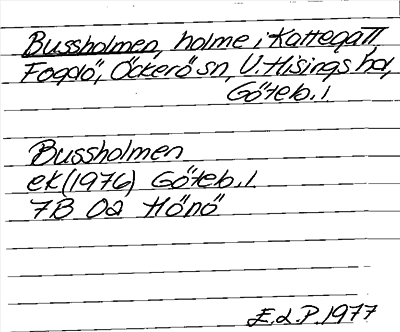 Bussholmen, holme i Kattegatt,
Fogdö, Öckerö sn, V. Hisings hd,
Göteb. l.
Bussholmen
ek (1976) Göteb. l.
7B 0a Hönö
E. L. P. 1977